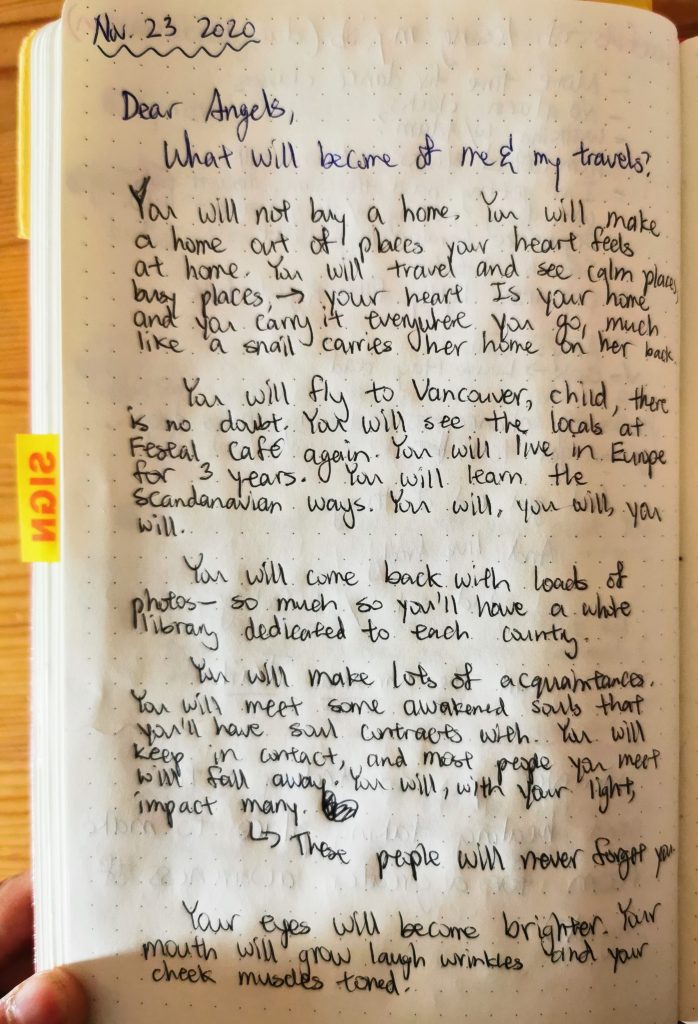 Nov. 23 2020
Dear Angels,
What will become of me & my travels?
You will not buy a home. You will make
a home out of places your heart feels
at home. You will travel and see calm places,
busy places, → your heart Is your home
and you carry it everywhere you go, much
like a snail carries her home on her back.
You will fly to Vancouver, child, there
is no doubt. You will see the locals at
Café again. You will live in Europe
for 3 years. You will learn the
Scandanavian ways. You will, you will, you
will.
You will come back with loads of
photos- so much so you'll have a whole
library dedicated to each country.
You will make lots of acquaintances.
You will meet some awakened souls that
you'll have soul contracts with. You will
keep in contact, and most people you meet
will fall away. You will, with your light,
impact many.
↳ These people will never forget you
Your eyes will become brighter. Your
mouth will grow laugh wrinkles and your
cheek muscles toned.
SIGN